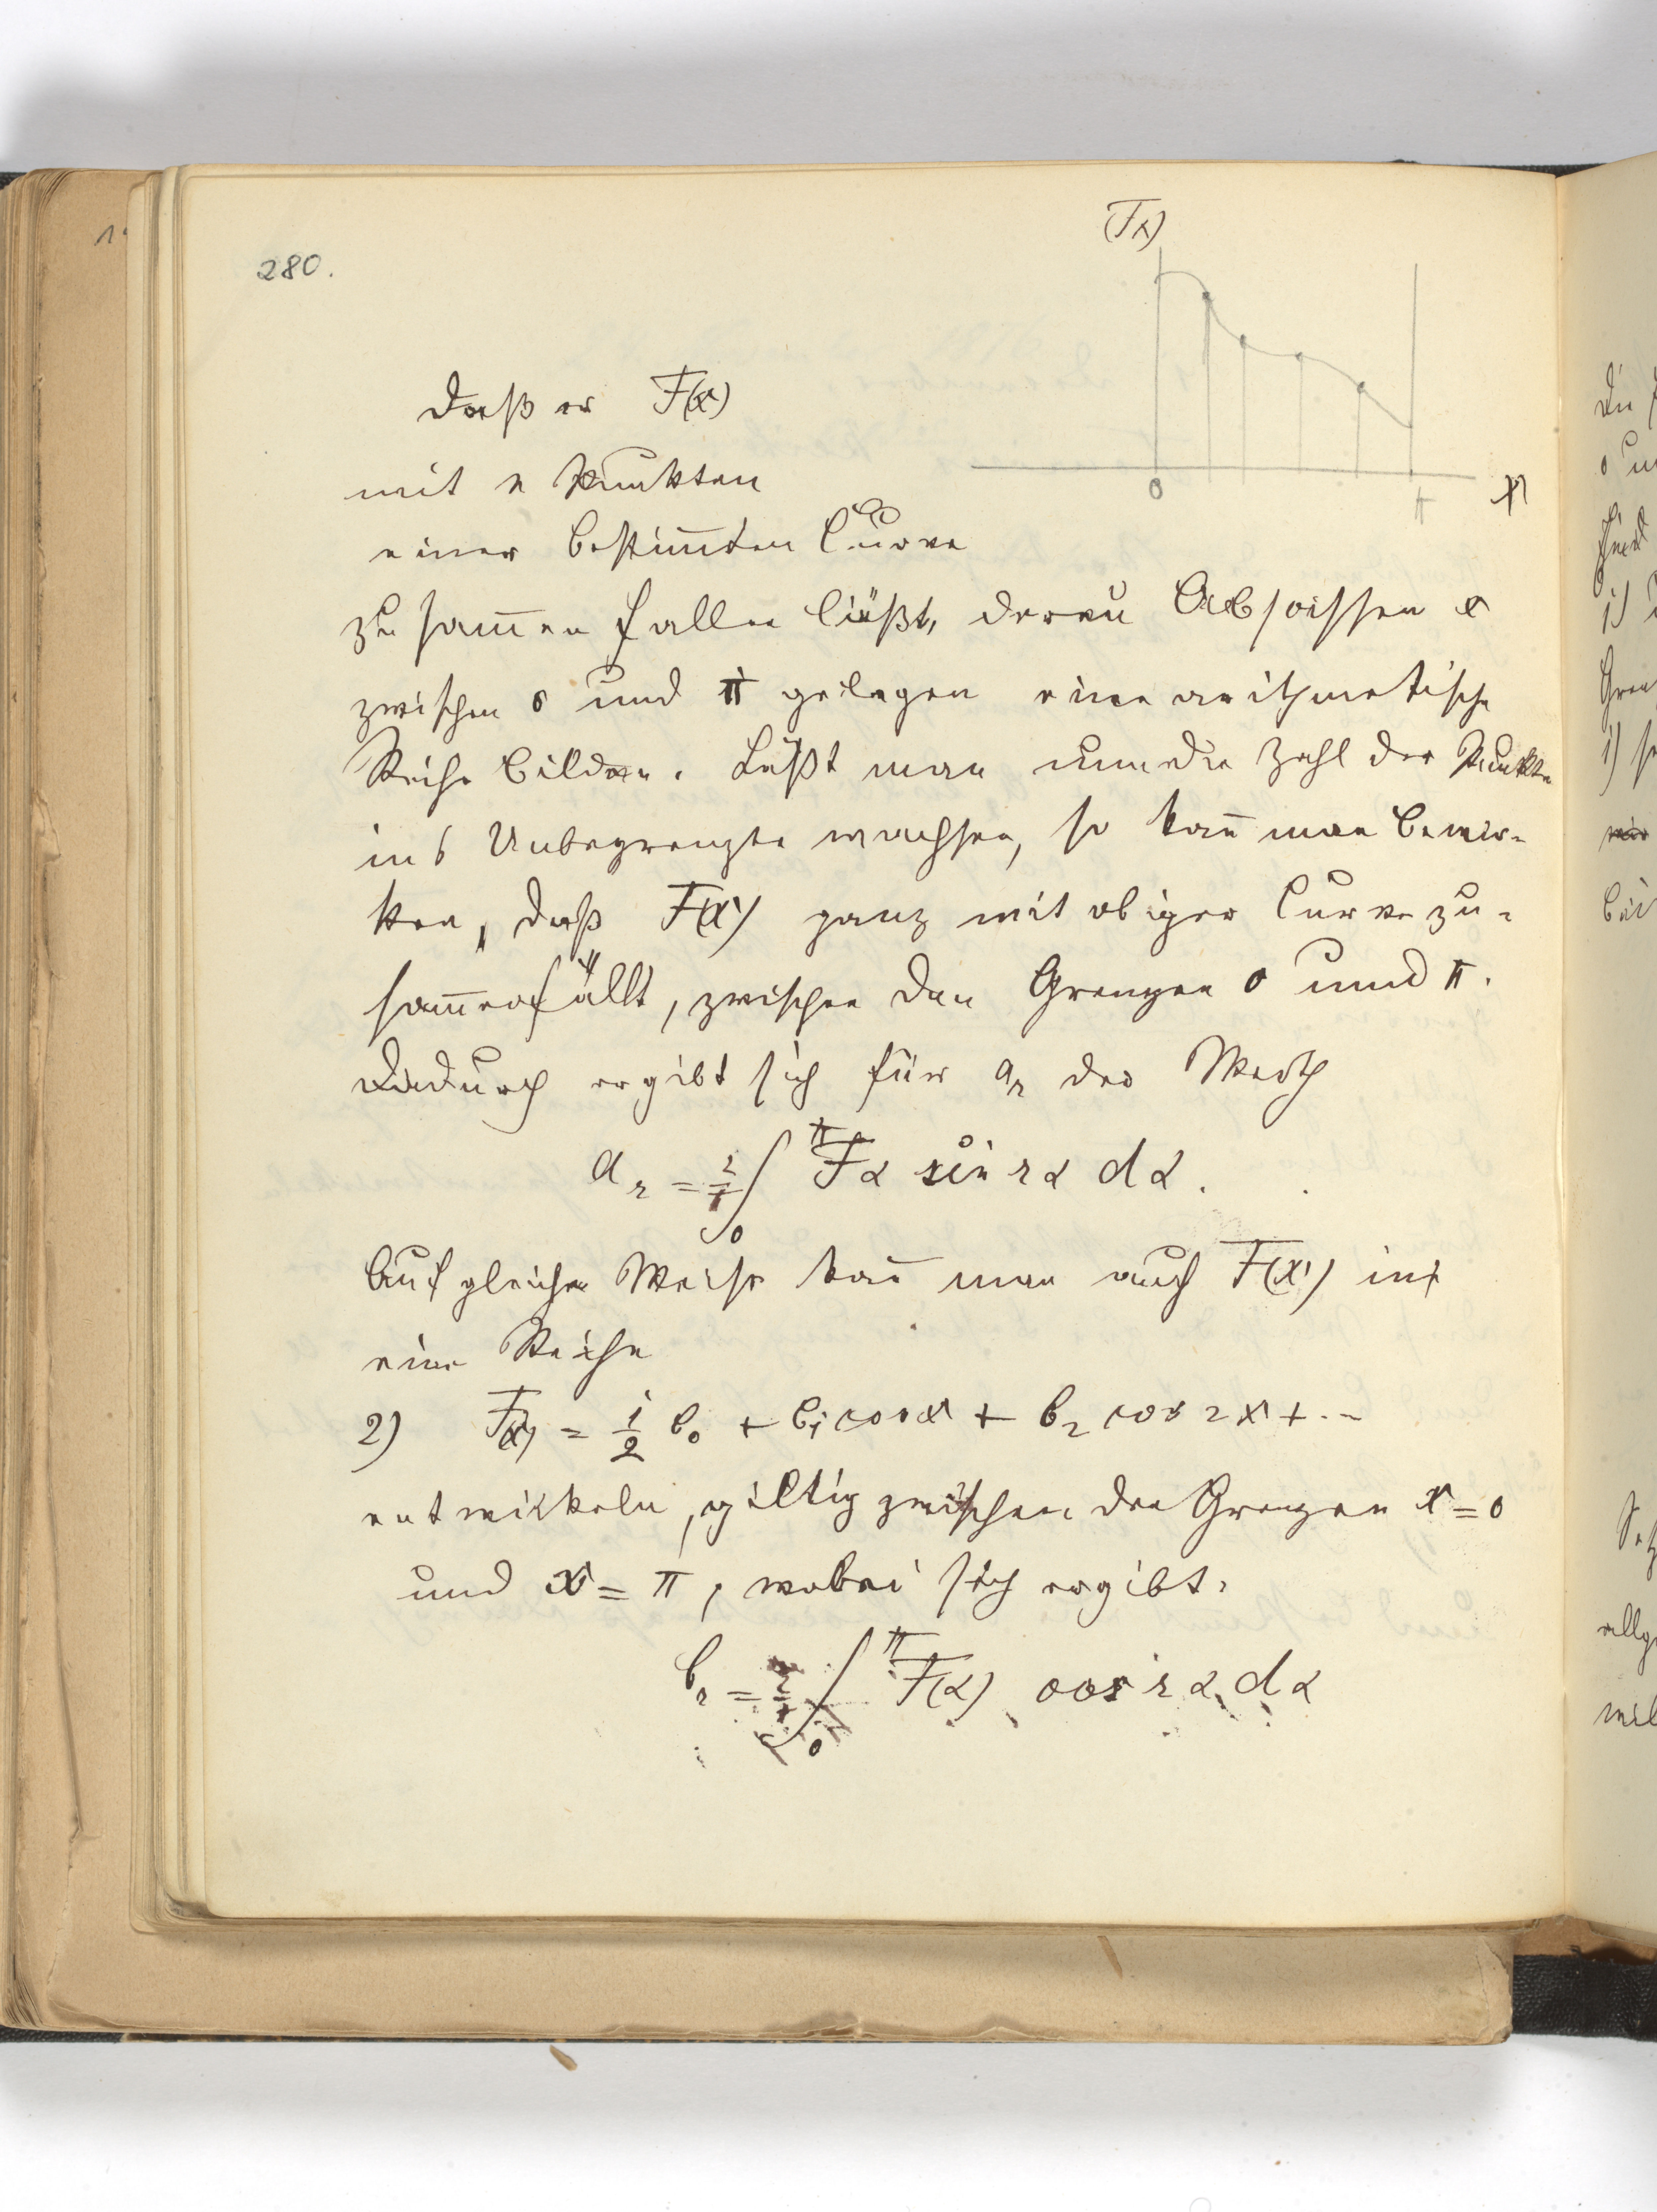 280.
(Fx)
0 π x
daß er F(x)
mit n Punkten
einer bestim̅ten Curve
zusam̅en fallen läßt, deren Abscissen x
zwischen 0 und π gelegen eine arithmetische
Reihe bilden. Läßt man nun die Zahl der Punkte
ins Unbegrenzte wachsen, so kan̅ man bewir-
ken, daß F(x) ganz mit obiger Curve zu-
sam̅enfällt, zwischen den Grenzen 0 und π.
Dadurch ergibt sich für a_r der Werth
a_r = 2/π ∫_0^π Fα sin rα dα.
Auf gleiche Weise kan̅ man auch F(x) in
eine Reihe
2) F(x) = 1/2 b_0 + b_1 cos x + b_2 cos 2x + ..
entwickeln, giltig zwischen den Grenzen x = 0
und x = π, wobei sich ergibt.
b_r = 2/π ∫_0^π F(α) cos rα dα